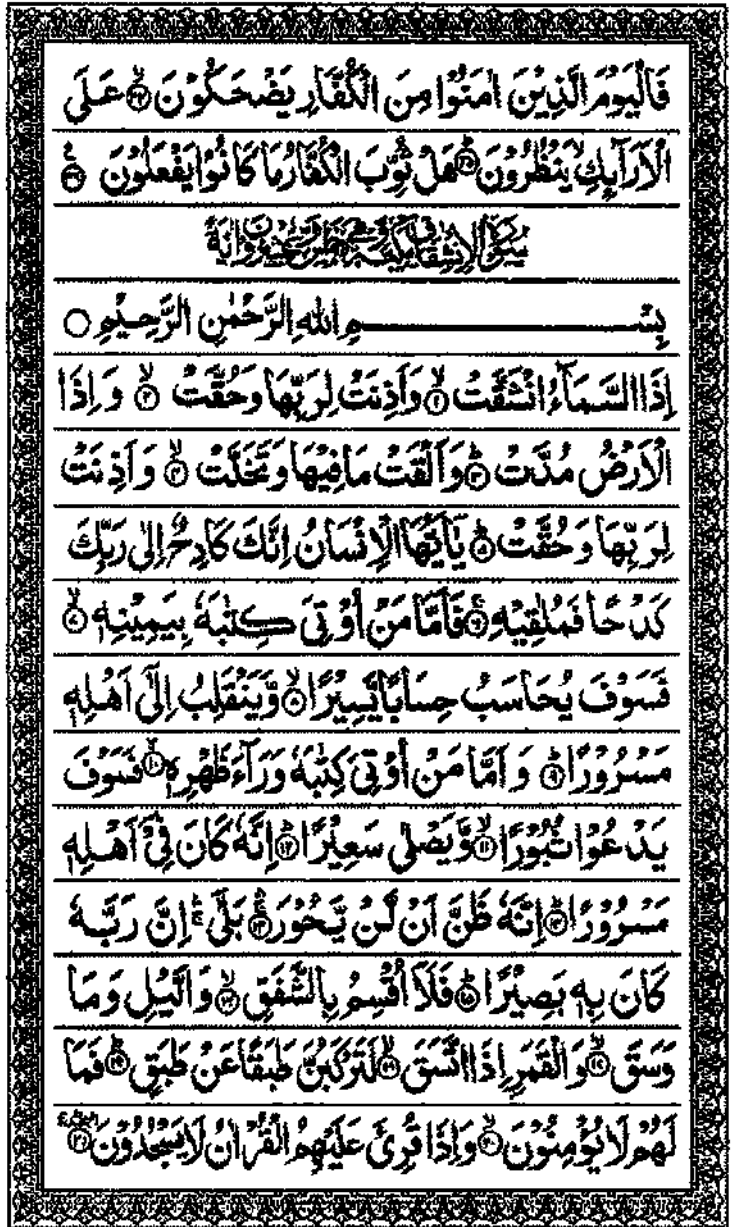 فَالْيَوْمَ الَّذِيْنَ اٰمَنُوْا مِنَ الْكُفَّارِ يَضْحَكُوْنَ ۙ﴿۳۴﴾ عَلَى
الْاَرَآئِكِ ۙ يَنْظُرُوْنَ ؕ﴿۳۵﴾ هَلْ ثُوِّبَ الْكُفَّارُ مَا كَانُوْا يَفْعَلُوْنَ ﴿۳۶﴾
سُوْرَةُ الْاِنْشِقَاقِ مَكِّيَّةٌ وَّهِيَ خَمْسٌ وَّعِشْرُوْنَ اٰيَةً
بِسْمِ اللّٰهِ الرَّحْمٰنِ الرَّحِيْمِ
اِذَا السَّمَآءُ انْشَقَّتْ ۙ﴿۱﴾ وَاَذِنَتْ لِرَبِّهَا وَحُقَّتْ ۙ﴿۲﴾ وَاِذَا
الْاَرْضُ مُدَّتْ ؕ﴿۳﴾ وَاَلْقَتْ مَا فِيْهَا وَتَخَلَّتْ ۙ﴿۴﴾ وَاَذِنَتْ
لِرَبِّهَا وَحُقَّتْ ؕ﴿۵﴾ يٰۤاَيُّهَا الْاِنْسَانُ اِنَّكَ كَادِحٌ اِلٰى رَبِّكَ
كَدْحًا فَمُلٰقِيْهِ ۚ﴿۶﴾ فَاَمَّا مَنْ اُوْتِيَ كِتٰبَهٗ بِيَمِيْنِهٖ ۙ﴿۷﴾
فَسَوْفَ يُحَاسَبُ حِسَابًا يَّسِيْرًا ۙ﴿۸﴾ وَّيَنْقَلِبُ اِلٰۤى اَهْلِهٖ
مَسْرُوْرًا ؕ﴿۹﴾ وَاَمَّا مَنْ اُوْتِيَ كِتٰبَهٗ وَرَآءَ ظَهْرِهٖ ۙ﴿۱۰﴾ فَسَوْفَ
يَدْعُوْا ثُبُوْرًا ۙ﴿۱۱﴾ وَّيَصْلٰى سَعِيْرًا ؕ﴿۱۲﴾ اِنَّهٗ كَانَ فِيْۤ اَهْلِهٖ
مَسْرُوْرًا ؕ﴿۱۳﴾ اِنَّهٗ ظَنَّ اَنْ لَّنْ يَّحُوْرَ ۚۛ﴿۱۴﴾ بَلٰۤى ۚۛ اِنَّ رَبَّهٗ
كَانَ بِهٖ بَصِيْرًا ؕ﴿۱۵﴾ فَلَاۤ اُقْسِمُ بِالشَّفَقِ ۙ﴿۱۶﴾ وَالَّيْلِ وَمَا
وَسَقَ ۙ﴿۱۷﴾ وَالْقَمَرِ اِذَا اتَّسَقَ ۙ﴿۱۸﴾ لَتَرْكَبُنَّ طَبَقًا عَنْ طَبَقٍ ؕ﴿۱۹﴾ فَمَا
لَهُمْ لَا يُؤْمِنُوْنَ ۙ﴿۲۰﴾ وَاِذَا قُرِئَ عَلَيْهِمُ الْقُرْاٰنُ لَا يَسْجُدُوْنَ ﴿۲۱﴾